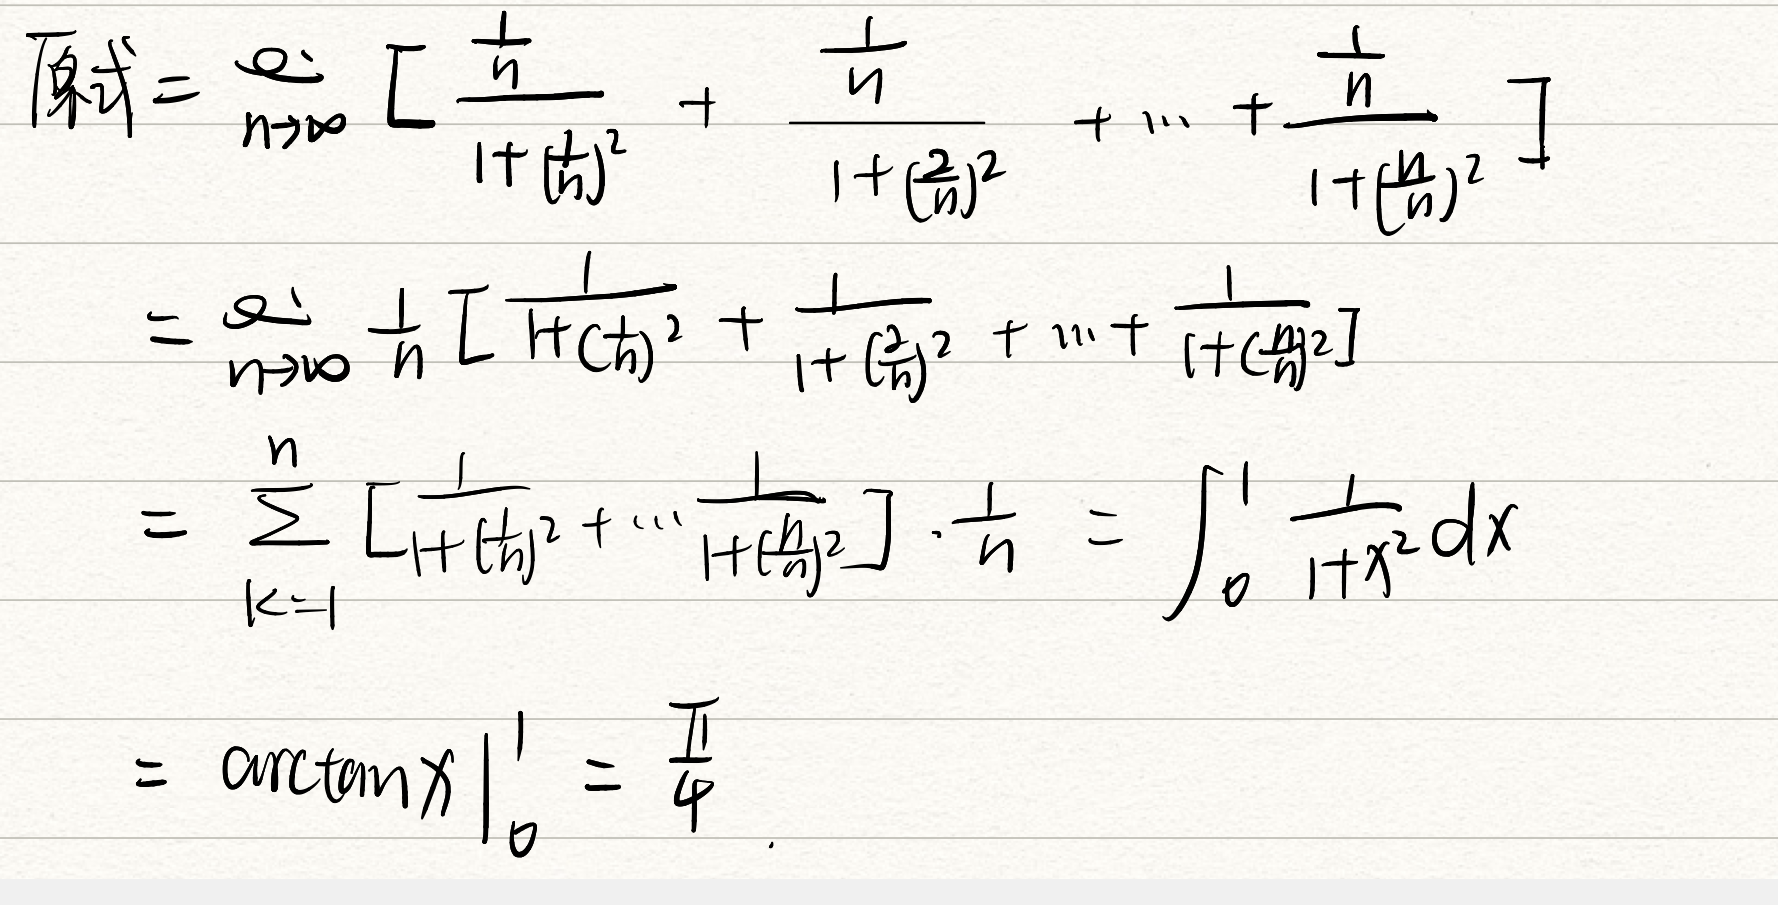 原式 = lim n→∞ [ (1/n)/(1+(1/n)²) + (1/n)/(1+(2/n)²) + ... + (1/n)/(1+(n/n)²) ]
= lim n→∞ 1/n [ 1/(1+(1/n)²) + 1/(1+(2/n)²) + ... + 1/(1+(n/n)²) ]
= ∑_{k=1}^{n} [ 1/(1+(1/n)²) + ... 1/(1+(n/n)²) ] · 1/n = ∫₀¹ 1/(1+x²) dx
= arctan x |₀¹ = π/4 .